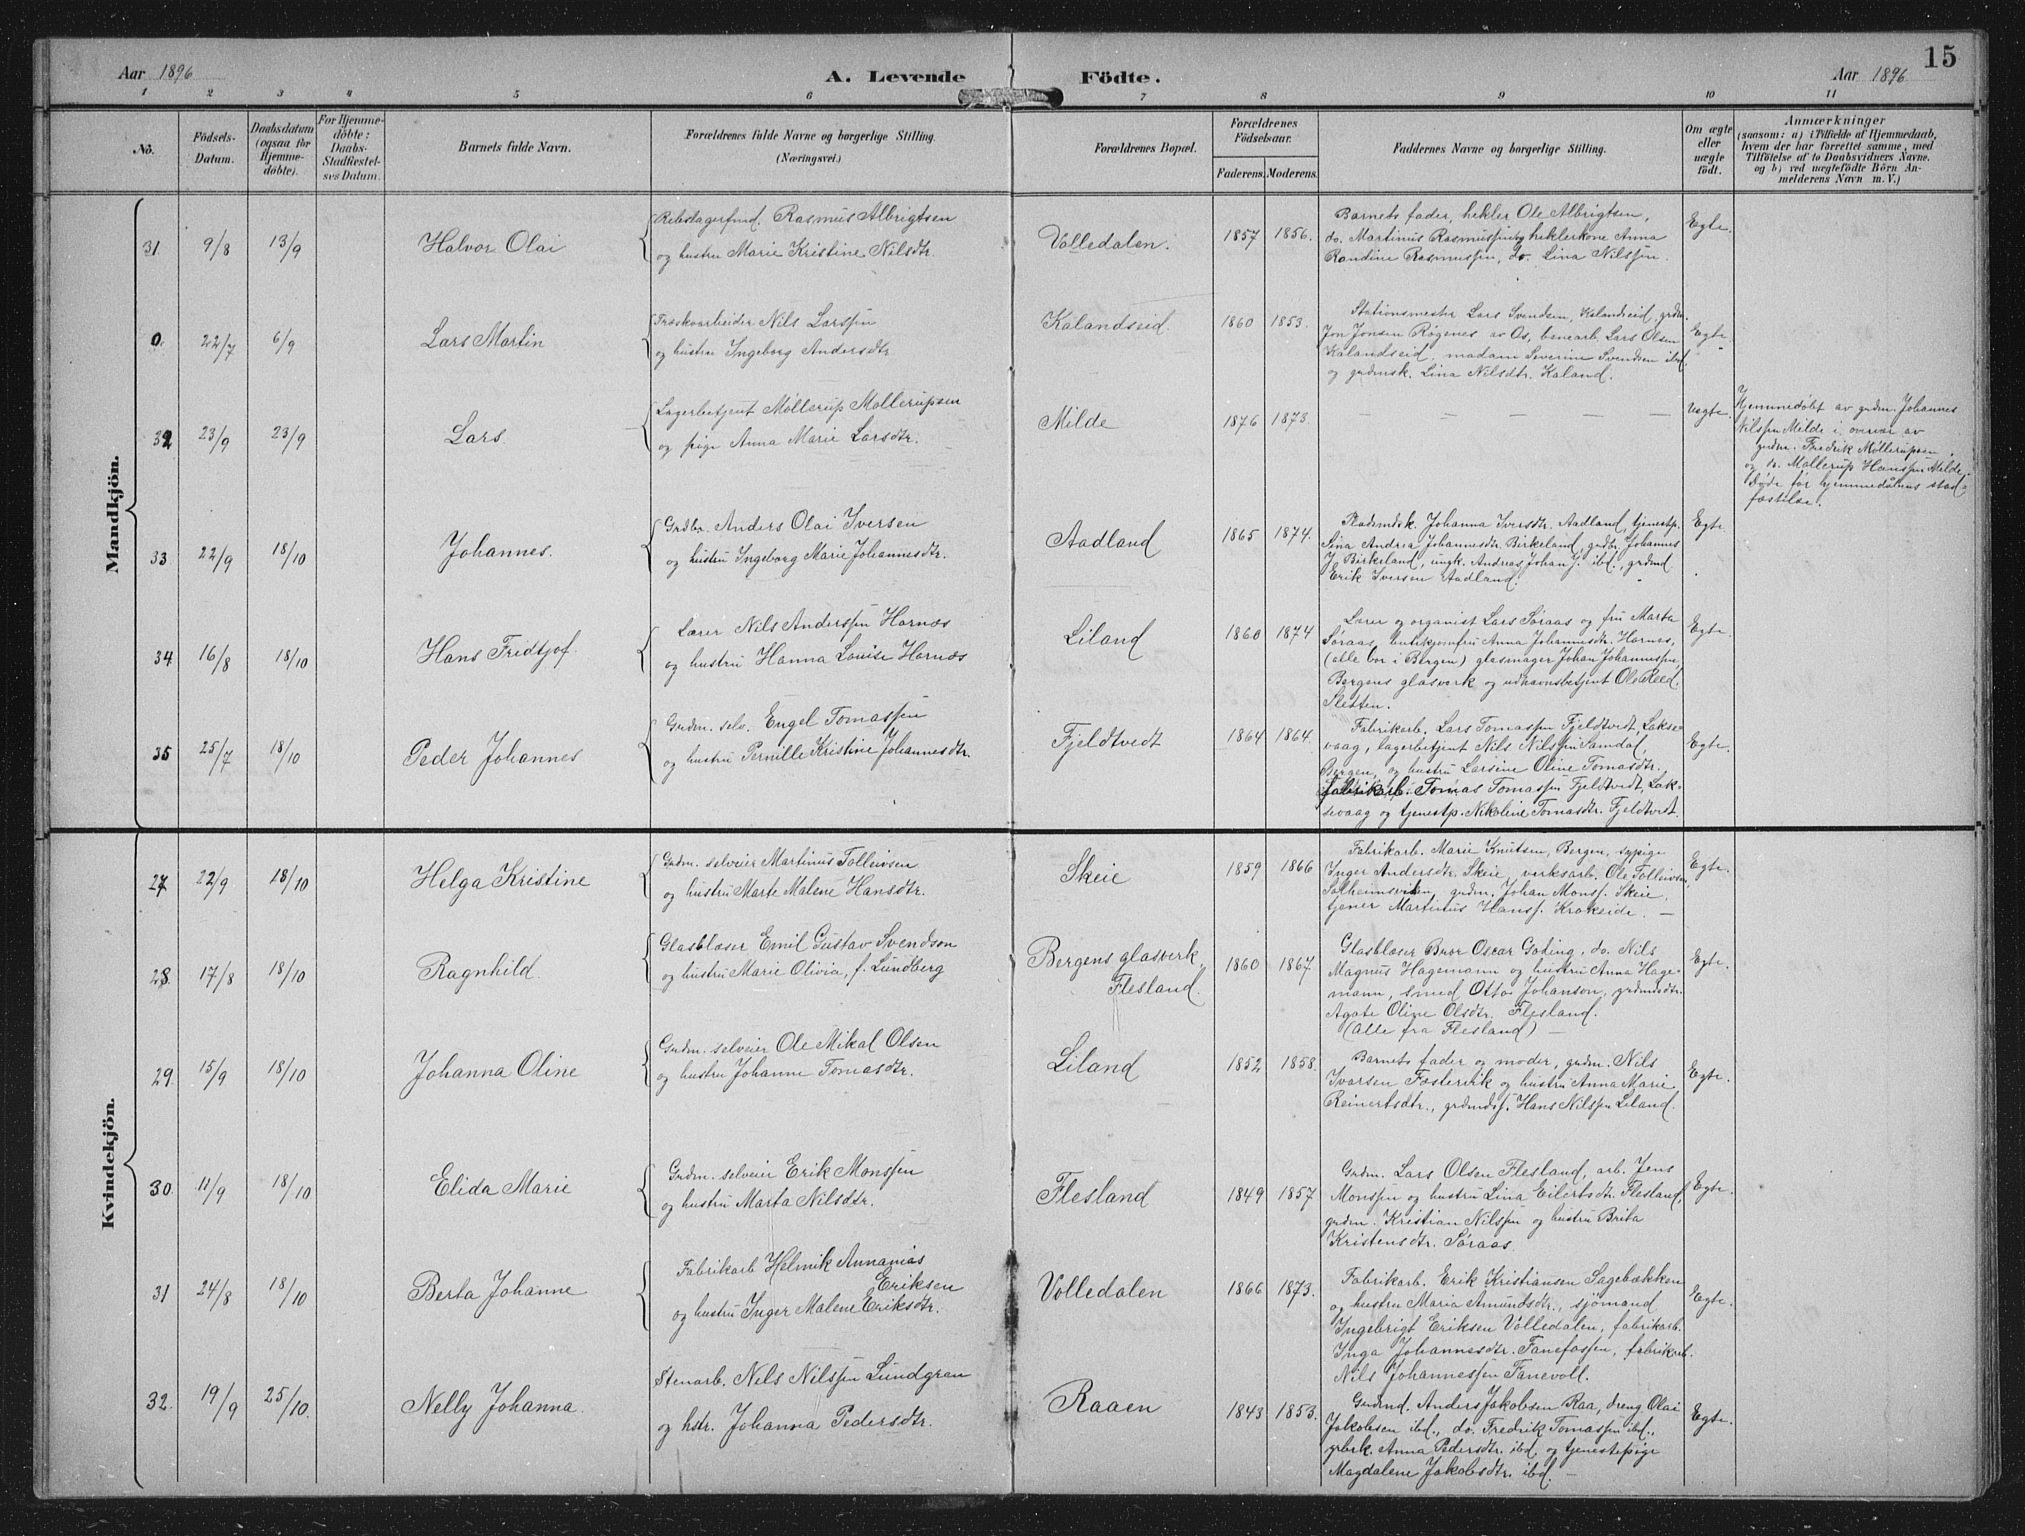 Aar 1896
A. Levende Födte.
Aar 1896
15
1 2 3 4 5 6 7 8 9 10 11
No.
Födsels-
Datum.
Daabsdatum
(ogsaa for
Hjemme-
döbte).
For Hjemme-
döbte:
Daabs-
Stadfæstel-
ses Datum.
Barnets fulde Navn.
Forældrenes fulde Navne og borgerlige Stilling.
(Næringsvei.)
Forældrenes Bopæl.
Forældrenes
Födselsaar.
Faderens. Moderens.
Faddernes Navne og borgerlige Stilling.
Om ægte
eller
uægte
födt.
Anmærkninger
(saasom: a) i Tilfælde af Hjemmedaab,
hvem der har forrettet samme, med
Tilföielse af to Daabsvidners Navne,
og b) ved uægtefödte Börn An-
melderens Navn m. V.)
Mandkjön.
31 9/8 13/9 Halvor Olai
Rebslagerfmd. Rasmus Albrigtsen
og hustru Marie Kristine Nilsdtr.
Volledalen. 1857 1856.
Barnets fader, hekler Ole Albrigtsen,
do. Martinus Rasmussen og heklerkone Anna
Randine Rasmussen, do. Lina Nilssen.
Egte.
0. 22/7 6/9 Lars Martin
Træskoarbeider Nils Larssen
og hustru Ingeborg Andersdtr
Kalandseid. 1860 1853.
Stationsmester Lars Svendsen, Kalandseid, grdm.
Jon Jonsen Røgenes av Os, benearb. Lars Olsen
Kalandseid, madam Severine Svendsen ibd.
og grdmsk. Lina Nilsdtr. Kaland.
Egte
32 23/9 23/9 Lars.
Lagerbetjent Møllerup Møllerupsen
og pige Anna Marie Larsdtr.
Milde 1876 1873
— — — — —
Uegte.
Hjemmedøbt av grdm. Johannes
Nilssen Milde i overvær av
grdm. Fredrik Møllerupsen
og do. Møllerup Hanssen Milde.
Døde før hjemmedåbens stad-
fæstelse.
33 22/9 18/10 Johannes.
Grdbr. Anders Olai Iversen
og hustru Ingeborg Marie Johannesdtr.
Aadland 1865 1874.
Pladsmdsk. Johanna Iversdtr. Aadland, tjenestp.
Lina Andrea Johannesdtr. Birkeland, grdbr. Johannes
J. Birkeland, ungk. Andreas Johan J. ibd., grdmd
Erik Iversen Aadland.
Egte
34 16/8 18/10 Hans Fridtjof.
Lærer Nils Anderssen Hornæs
og hustru Hanna Louise Hornæs
Liland 1860 1874
Lærer og organist Lars Søraas og fru Marta
Søraas, butikjomfru Anna Johannesdtr. Hornæs,
(alle bor i Bergen) glasmager Johan Johannessen,
Bergens glasverk og udhavnsbetjent Ole Reed.
Sletten.
Egte.
35 25/7 18/10 Peder Johannes
Grdm. selv. Engel Tomassen
og hustru Pernille Kristine Johannesdtr.
Fjeldtvedt 1864 1864.
Fabrikarb. Lars Tomassen Fjeldtvedt, Lakse-
vaag, lagerbetjent Nils Nilssen Samdal,
Bergen, og hustru Larsine Oline Tomasdtr.,
fabrikarb. Tomas Tomassen Fjeldtvedt, Lak-
sevaag og tjenestp. Nikoline Tomasdtr. Fjeldtvedt.
Egte.
Kvindekjön.
27 22/9 18/10 Helga Kristine
Grdm. selveier Martinus Tolleivsen
og hustru Marte Malene Hansdtr.
Skeie 1859 1866
Fabrikarb. Marie Knutsen, Bergen, sypige
Inger Andersdtr. Skeie, verksarb. Ole Tolleivsen,
Solheimsviken, grdm. Johan Monss. Skeie,
tjener Martinus Hanss. Krokeide. —
Egte.
28. 17/8 18/10 Ragnhild.
Glasblæser Emil Gustav Svendson
og hustru Marie Olivia, f. Lundberg
Bergens glasverk,
Flesland. 1860 1867.
Glasblæser Bror Oscar Goting, do. Nils
Magnus Hagemann og hustru Anna Hage-
mann, smed Otto Johanson, grdmsdtr.
Agate Oline Olsdtr. Flesland.
(Alle fra Flesland) —
Egte.
29. 15/9 18/10 Johanna Oline
Grdm. selveier Ole Mikal Olsen
og hustru Johanne Tomasdtr.
Liland 1852 1858.
Barnets fader og moder, grdm. Nils
Ivarsen Fosterevik og hustru Anna Marie
Reinertsdtr., grdmdss. Hans Nilssen Liland.
Egte.
30. 11/9 18/10 Elida Marie
Grdm. selveier Erik Monssen
og hustru Marta Nilsdtr.
Flesland 1849 1857
Grdm. Lars Olsen Flesland, arb. Jens
Monssen og hustru Lina Eilertsdtr. Flesland,
grdm. Kristian Nilssen og hustru Brita
Kristensdtr. Søraas.
Egte.
31 24/8 18/10 Berta Johanne
Fabrikarb Helmik Annanias
Eriksen
og hustru Inger Malene Eriksdtr.
Volledalen 1866 1873.
Fabrikarb. Erik Kristiansen Sagebækken
og hustru Maria Amundsdtr., sjömand
Ingebrigt Eriksen Volledalen, fabrikarb.
Inga Johannesdtr. Fanefossen, fabrikarb.
Nils Johannessen Fanevoll.
Egte.
32. 19/9 25/10. Nelly Johanna.
Stenarb. Nels Nilssen Lundgran
og hstr. Johanna Pedersdtr.
Raaen 1843 1853.
Grdmd. Anders Jakobsen Raa, dreng Olai
Jakobsen ibd., do. Fredrik Tomassen ibd.,
grbrk. Anna Pedersdtr. ibd. og tjenestepige
Magdalene Jakobsdtr. ibd. —
Egte.